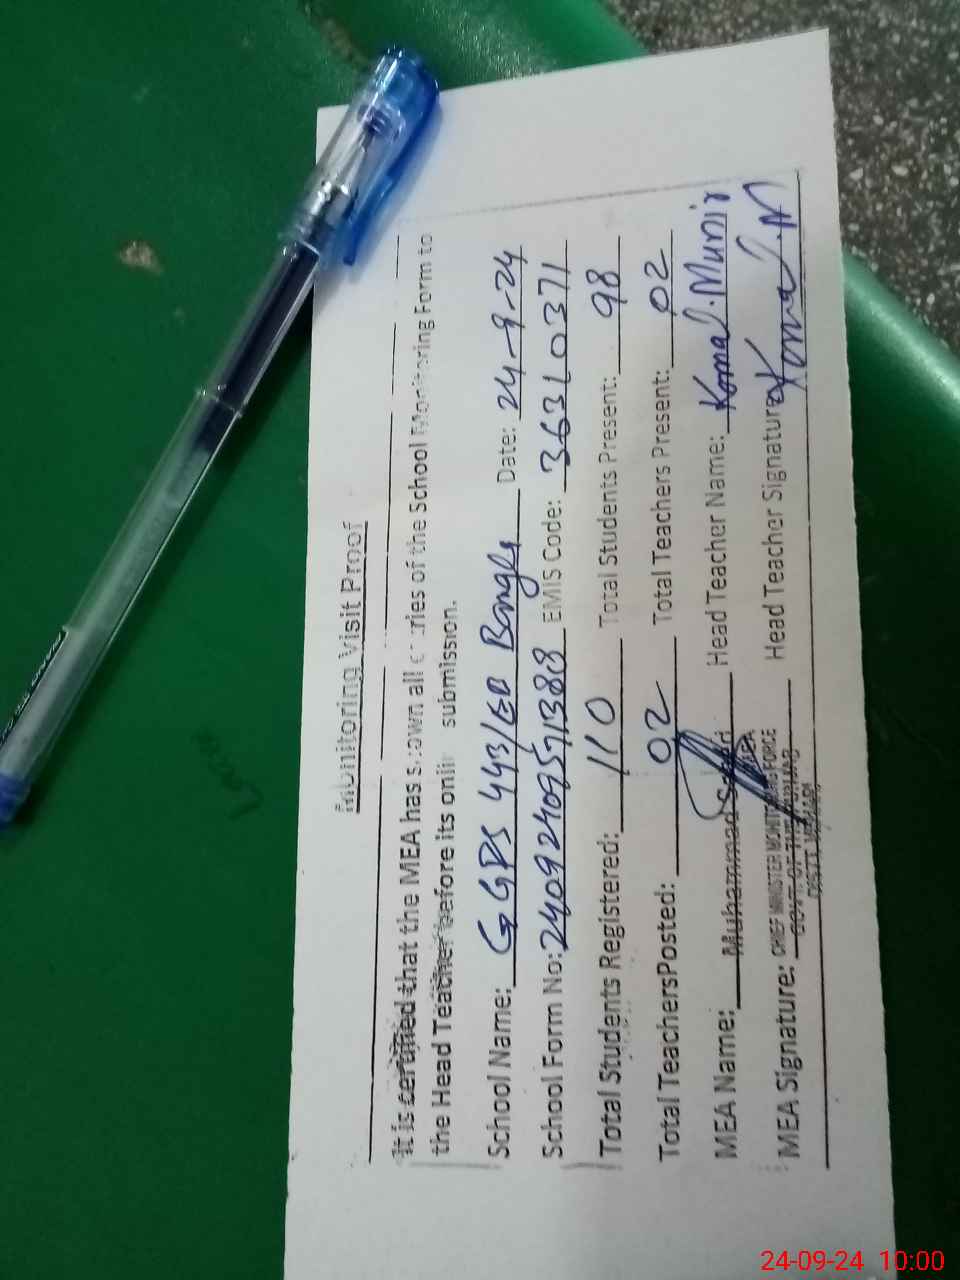 Monitoring Visit Proof
It is certified that the MEA has shown all entries of the School Monitoring Form to
the Head Teacher before its online submission.
School Name: GGPS 443/EB Bangla Date: 24-9-24
School Form No: EMIS Code: 36310371
Total Students Registered: 110 Total Students Present: 98
Total TeachersPosted: 02 Total Teachers Present: 02
MEA Name: Muhammad Head Teacher Name: Komal.Munir
MEA Signature: Head Teacher Signature: Komal.M
MEA
CHIEF MINISTER MONITORING FORCE
GOVT. OF THE PUNJAB
DISTT. VEHARI
24-09-24 10:00